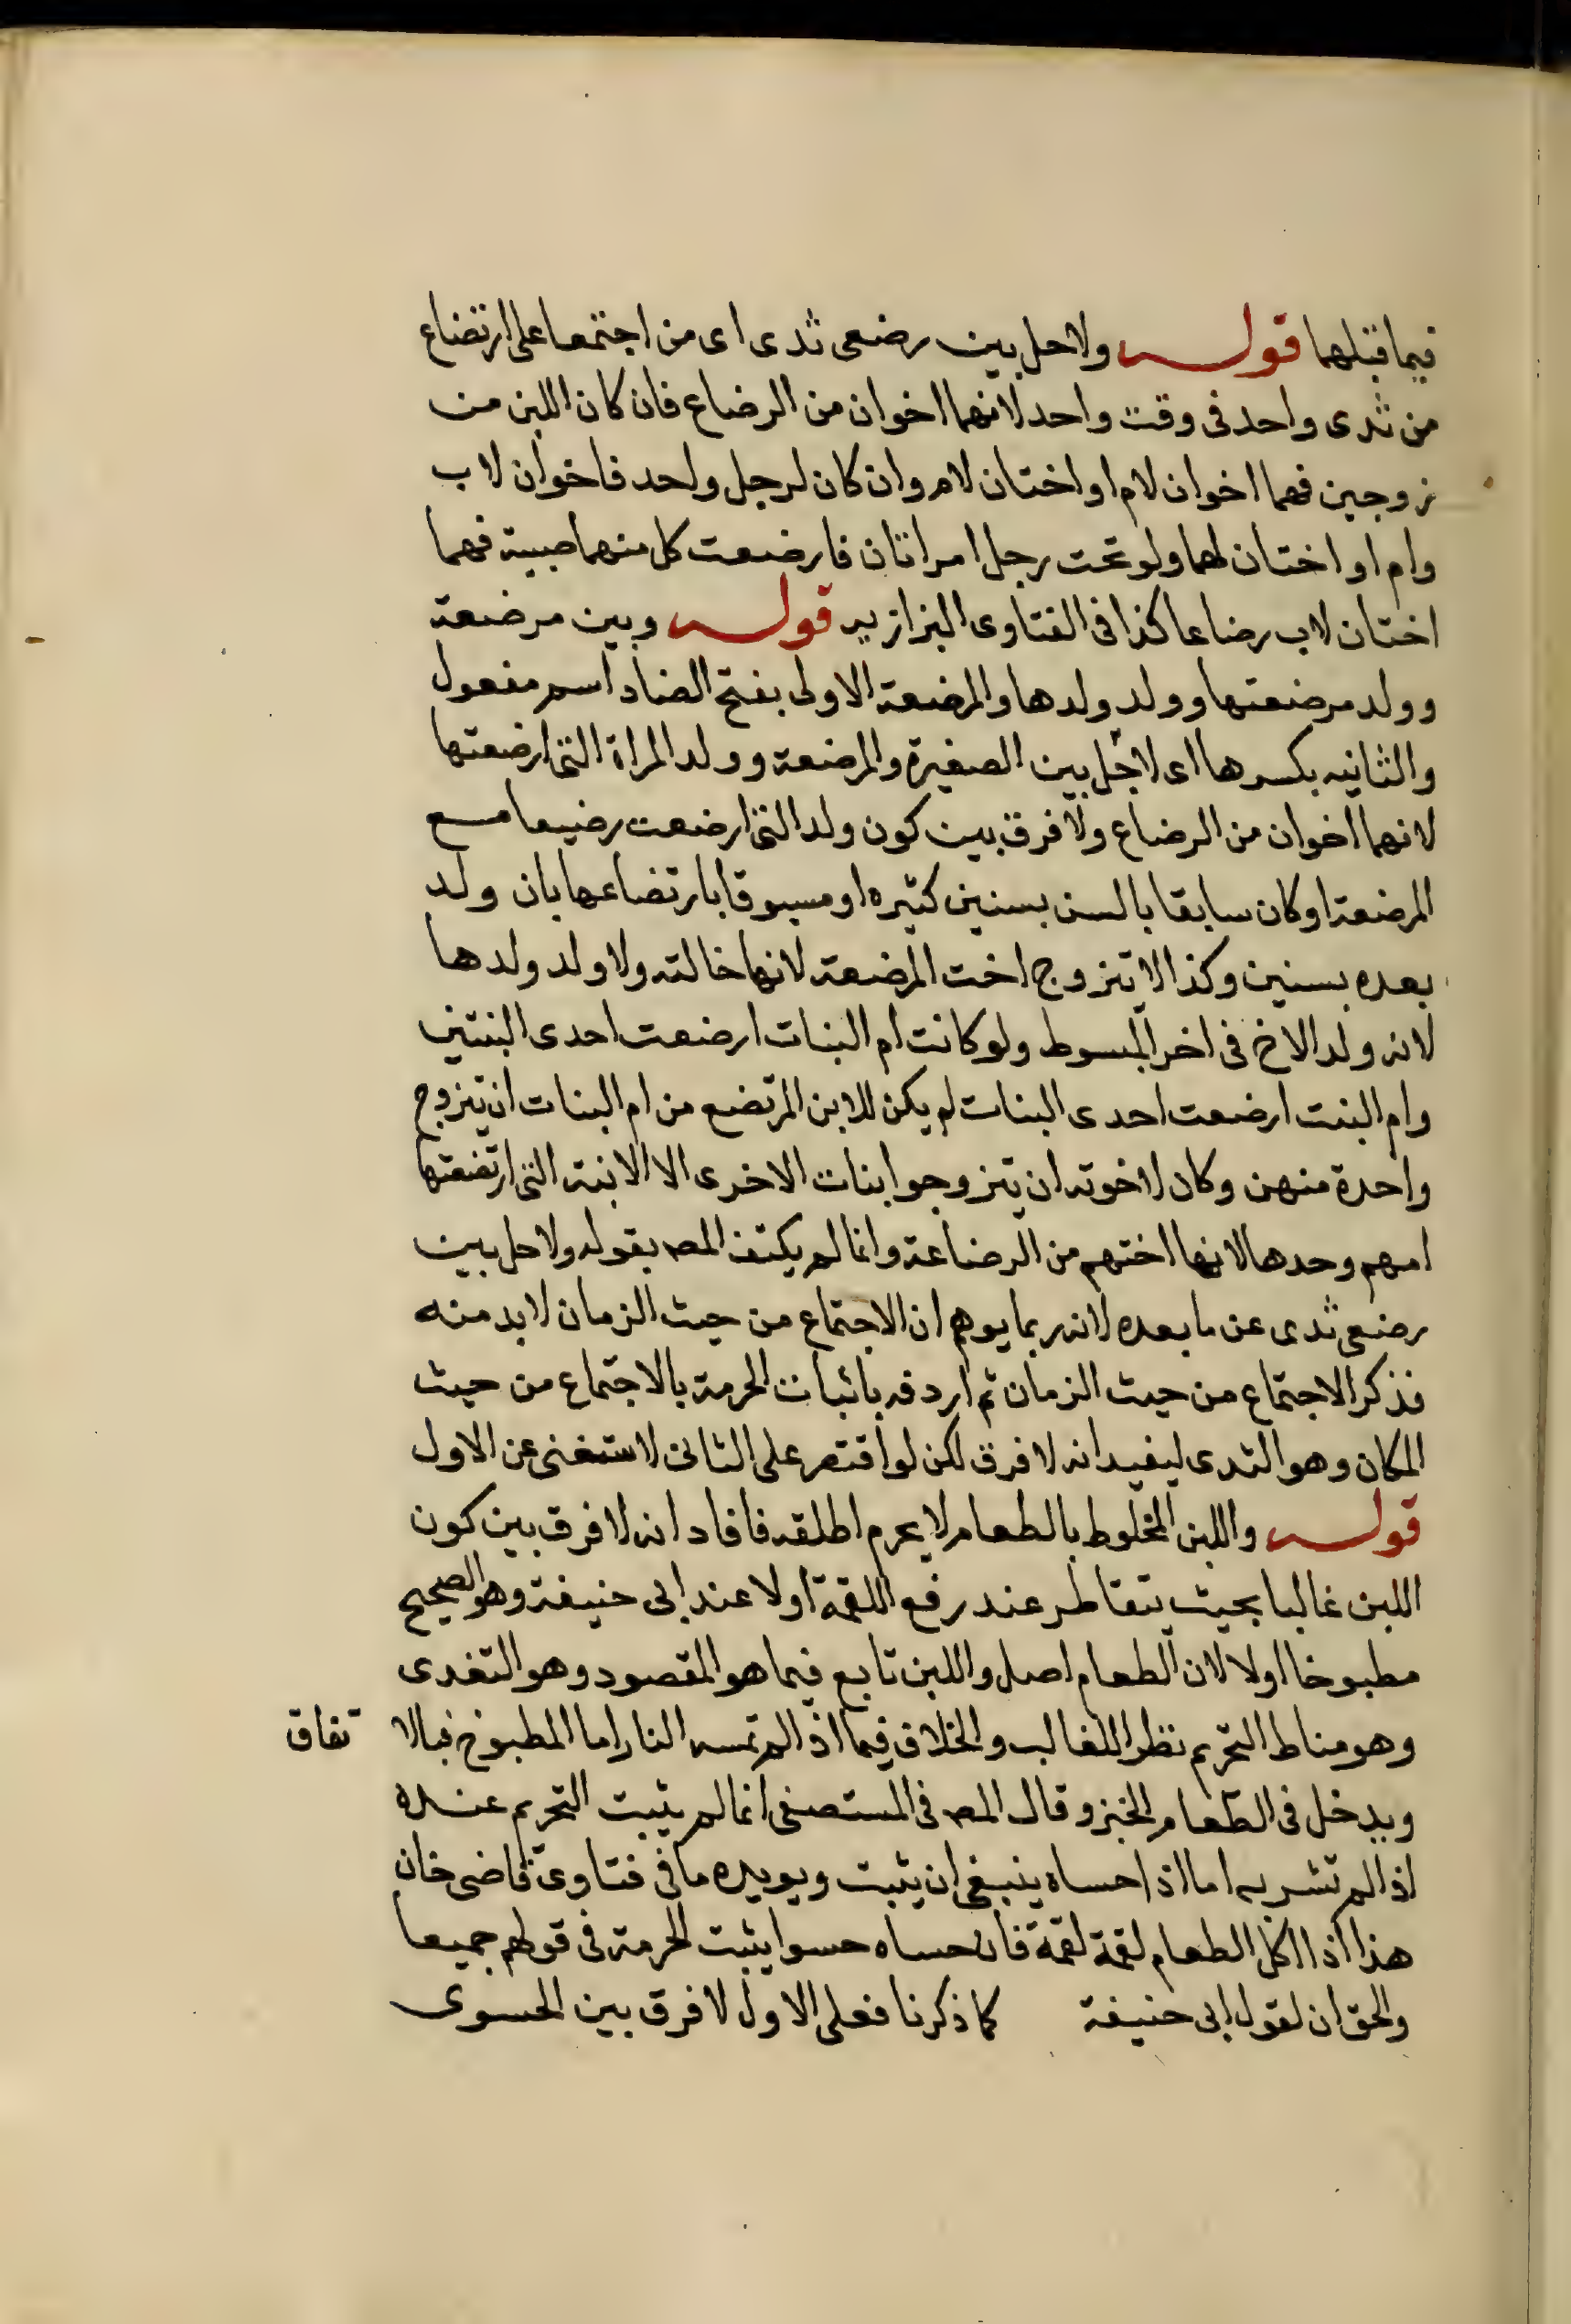 فيما قبلهما قوله ولا حل بين رضعى ثدى اى من اجتمعا على ارتضاع
من ثدى واحد فى وقت واحد لانهما اخوان من الرضاع فان كان اللبن من
زوجين فهما اخوان لام او اختان لام وان كان لرجل واحد فاخوان لاب
وام او اختان لهما ولو تحت رجل امراتان فارضعت كل منهما صبية فهما
اختان لاب رضاعا كذا فى الفتاوى البزازيه قوله وبين مرضعة
وولد مرضعتها وولد ولدها والمرضعة الاولى بفتح الضاد اسم مفعول
والثانيه بكسرها اى لا حل بين الصغيرة والمرضعة وولد المراة التى ارضعتها
لانهما اخوان من الرضاع ولا فرق بين كون ولد التى ارضعت رضيعا مع
المرضعة او كان سابقا بالسن بسنين كثيره او مسبوقا بارتضاعها بان ولد
بعده بسنين وكذا لا تتزوج اخت المرضعة لانها خالته ولا ولد ولدها
لانه ولد الاخ فى اخر المبسوط ولو كانت ام البنات ارضعت احدى البنتين
وام البنت ارضعت احدى البنات لم يكن للابن المرتضع من ام البنات ان يتزوج
واحدة منهن وكان لاخوته ان يتزوجوا بنات الاخرى الا الابنة التى ارتضعتها
امهم وحدها لانها اختهم من الرضاعة وانما لم يكتف المصـ بقوله ولا حل بين
رضعى ثدى عن ما بعده لانه ربما يوهم ان الاجتماع من حيث الزمان لا بد منه
فذكر الاجتماع من حيث الزمان ثم اردفه باثبات الحرمة بالاجتماع من حيث
المكان وهو الثدى ليفيد انه لا فرق لكن لو اقتصر على الثانى لاستغنى عن الاول
قوله واللبن المخلوط بالطعام لا يحرم اطلقه فافاد انه لا فرق بين كون
اللبن غالبا بحيث يتقاطر عند رفع اللقمة او لا عند ابى حنيفة وهو الصحيح
مطبوخا او لا لان الطعام اصل واللبن تابع فيما هو المقصود وهو التغدى
وهو مناط التحريم نظرا للغالب والخلاف فيما اذا لم تمسه النار اما المطبوخ فبالا تفاق
ويدخل فى الطعام الخبز وقال المصـ فى المستصفى انما لم يثبت التحريم عنده
اذا لم تشربه اما اذا حساه ينبغى ان يثبت ويويده ما فى فتاوى قاضى خان
هذا اذا اكل الطعام لقمة لقمة فان حساه حسوا يثبت الحرمة فى قولهم جميعا
والحق ان لقول ابى حنيفة كما ذكرنا فعلى الاول لا فرق بين الحسوى